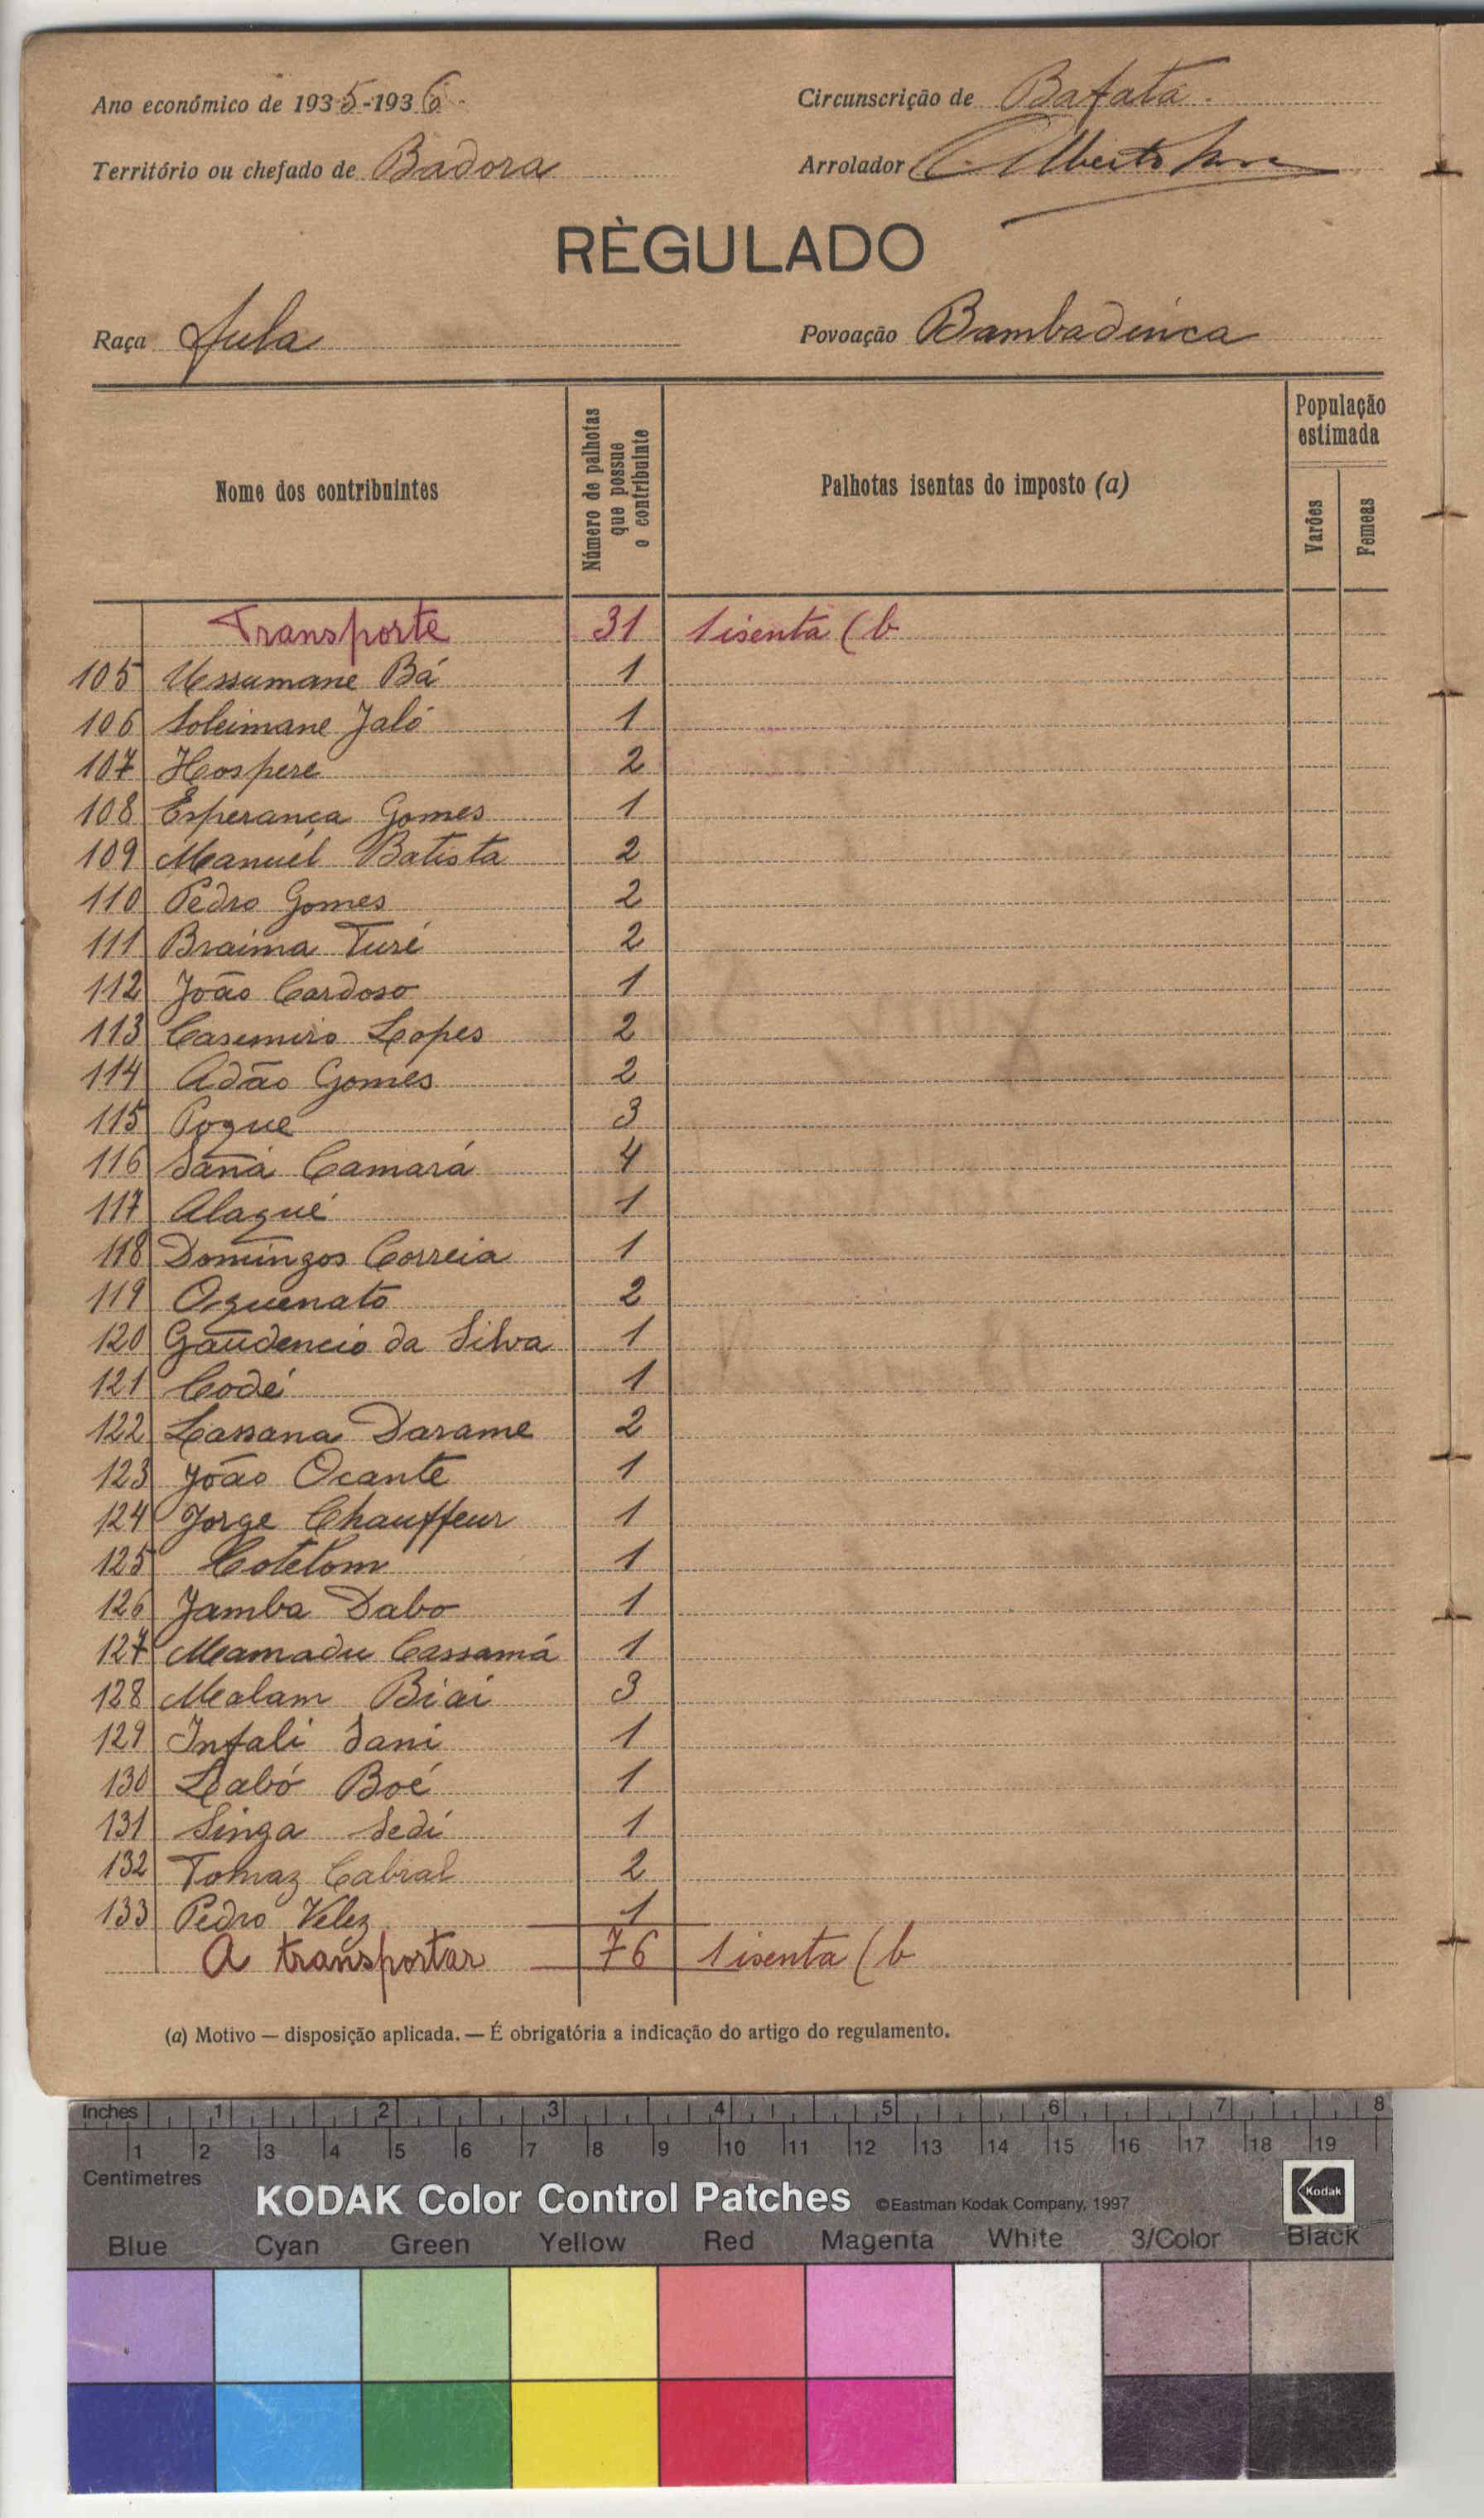 Ano económico de 1935-1936 Circunscrição de Bafata
Território ou chefado de Badora Arrolador Alberto
RÈGULADO
Raça Fula Povoação Bambadinca
Nome dos contribuintes Número de palhotas que possue o contribuinte Palhotas isentas do imposto (a) População estimada Varões Femeas
Transporte 31 1 isenta (b
105 Ussumane Bá 1
106 Soleimane Jaló 1
107 Hospere 2
108 Esperança Gomes 1
109 Manuel Batista 2
110 Pedro Gomes 2
111 Braima Turé 2
112 João Cardoso 1
113 Casemiro Lopes 2
114 Adão Gomes 2
115 Pogue 3
116 Saná Camará 4
117 Alagué 1
118 Domingos Correia 1
119 Oguenato 2
120 Gaudencio da Silva 1
121 Codé 1
122 Lassana Darame 2
123 João Ocante 1
124 Jorge Chauffeur 1
125 Cotelom 1
126 Jamba Dabo 1
127 Mamadu Cassamá 1
128 Malam Biai 3
129 Infali Sani 1
130 Labó Boé 1
131 Singa Sedi 1
132 Tomaz Cabral 2
133 Pedro Velez 1
A transportar 76 1 isenta (b
(a) Motivo — disposição aplicada. — É obrigatória a indicação do artigo do regulamento.
Inches 1 2 3 4 5 6 7 8
1 2 3 4 5 6 7 8 9 10 11 12 13 14 15 16 17 18 19
Centimetres
KODAK Color Control Patches ©Eastman Kodak Company, 1997 Kodak
Blue Cyan Green Yellow Red Magenta White 3/Color Black